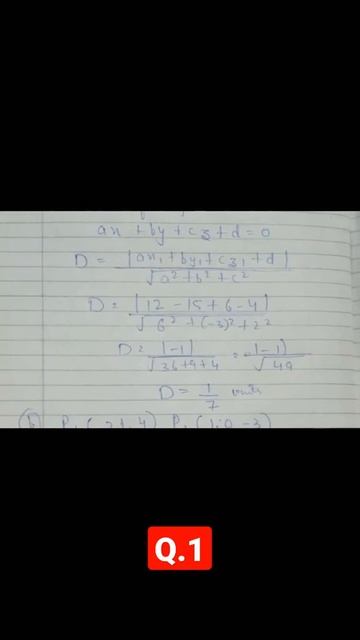 ax + by + cz + d = 0
D = |ax₁ + by₁ + cz₁ + d|
√a² + b² + c²
D = |12 - 15 + 6 - 4|
√6² + (-3)² + 2²
D = |-1| = |-1|
√36+9+4 √49
D = 1/7 units
(b) P₁ ( 2, 1, 4) P₂ (1, 0, -3)
Q.1